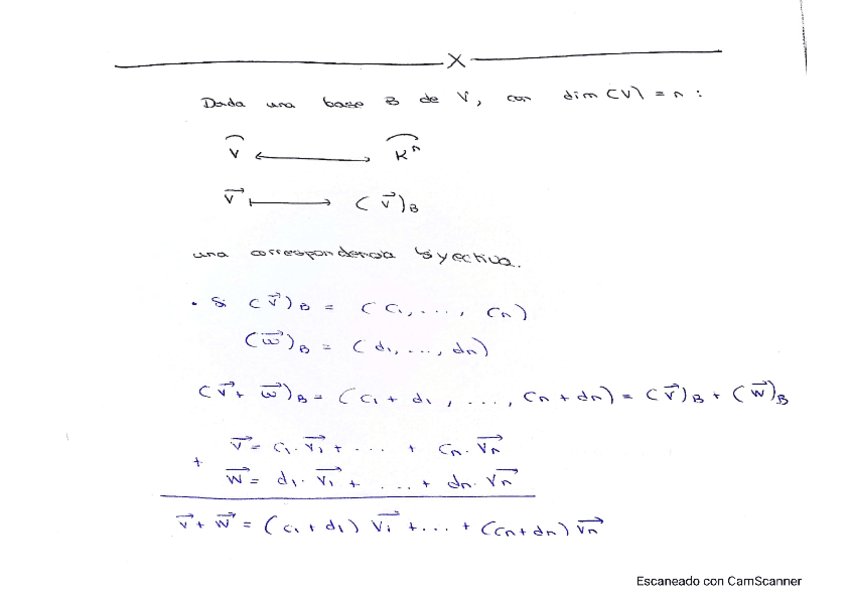 X
Dada una base B de V, con dim (V) = n :
V ⟷ Kⁿ
v⃗ ⟼ (v⃗)_B
una correspondencia biyectiva.
• Si (v⃗)_B = (c₁, ..., cₙ)
(w⃗)_B = (d₁, ..., dₙ)
(v⃗ + w⃗)_B = (c₁ + d₁, ..., cₙ + dₙ) = (v⃗)_B + (w⃗)_B
v⃗ = c₁ · v⃗₁ + ... + cₙ · v⃗ₙ
+
w⃗ = d₁ · v⃗₁ + ... + dₙ · v⃗ₙ
v⃗ + w⃗ = (c₁ + d₁) v⃗₁ + ... + (cₙ + dₙ) v⃗ₙ
Escaneado con CamScanner